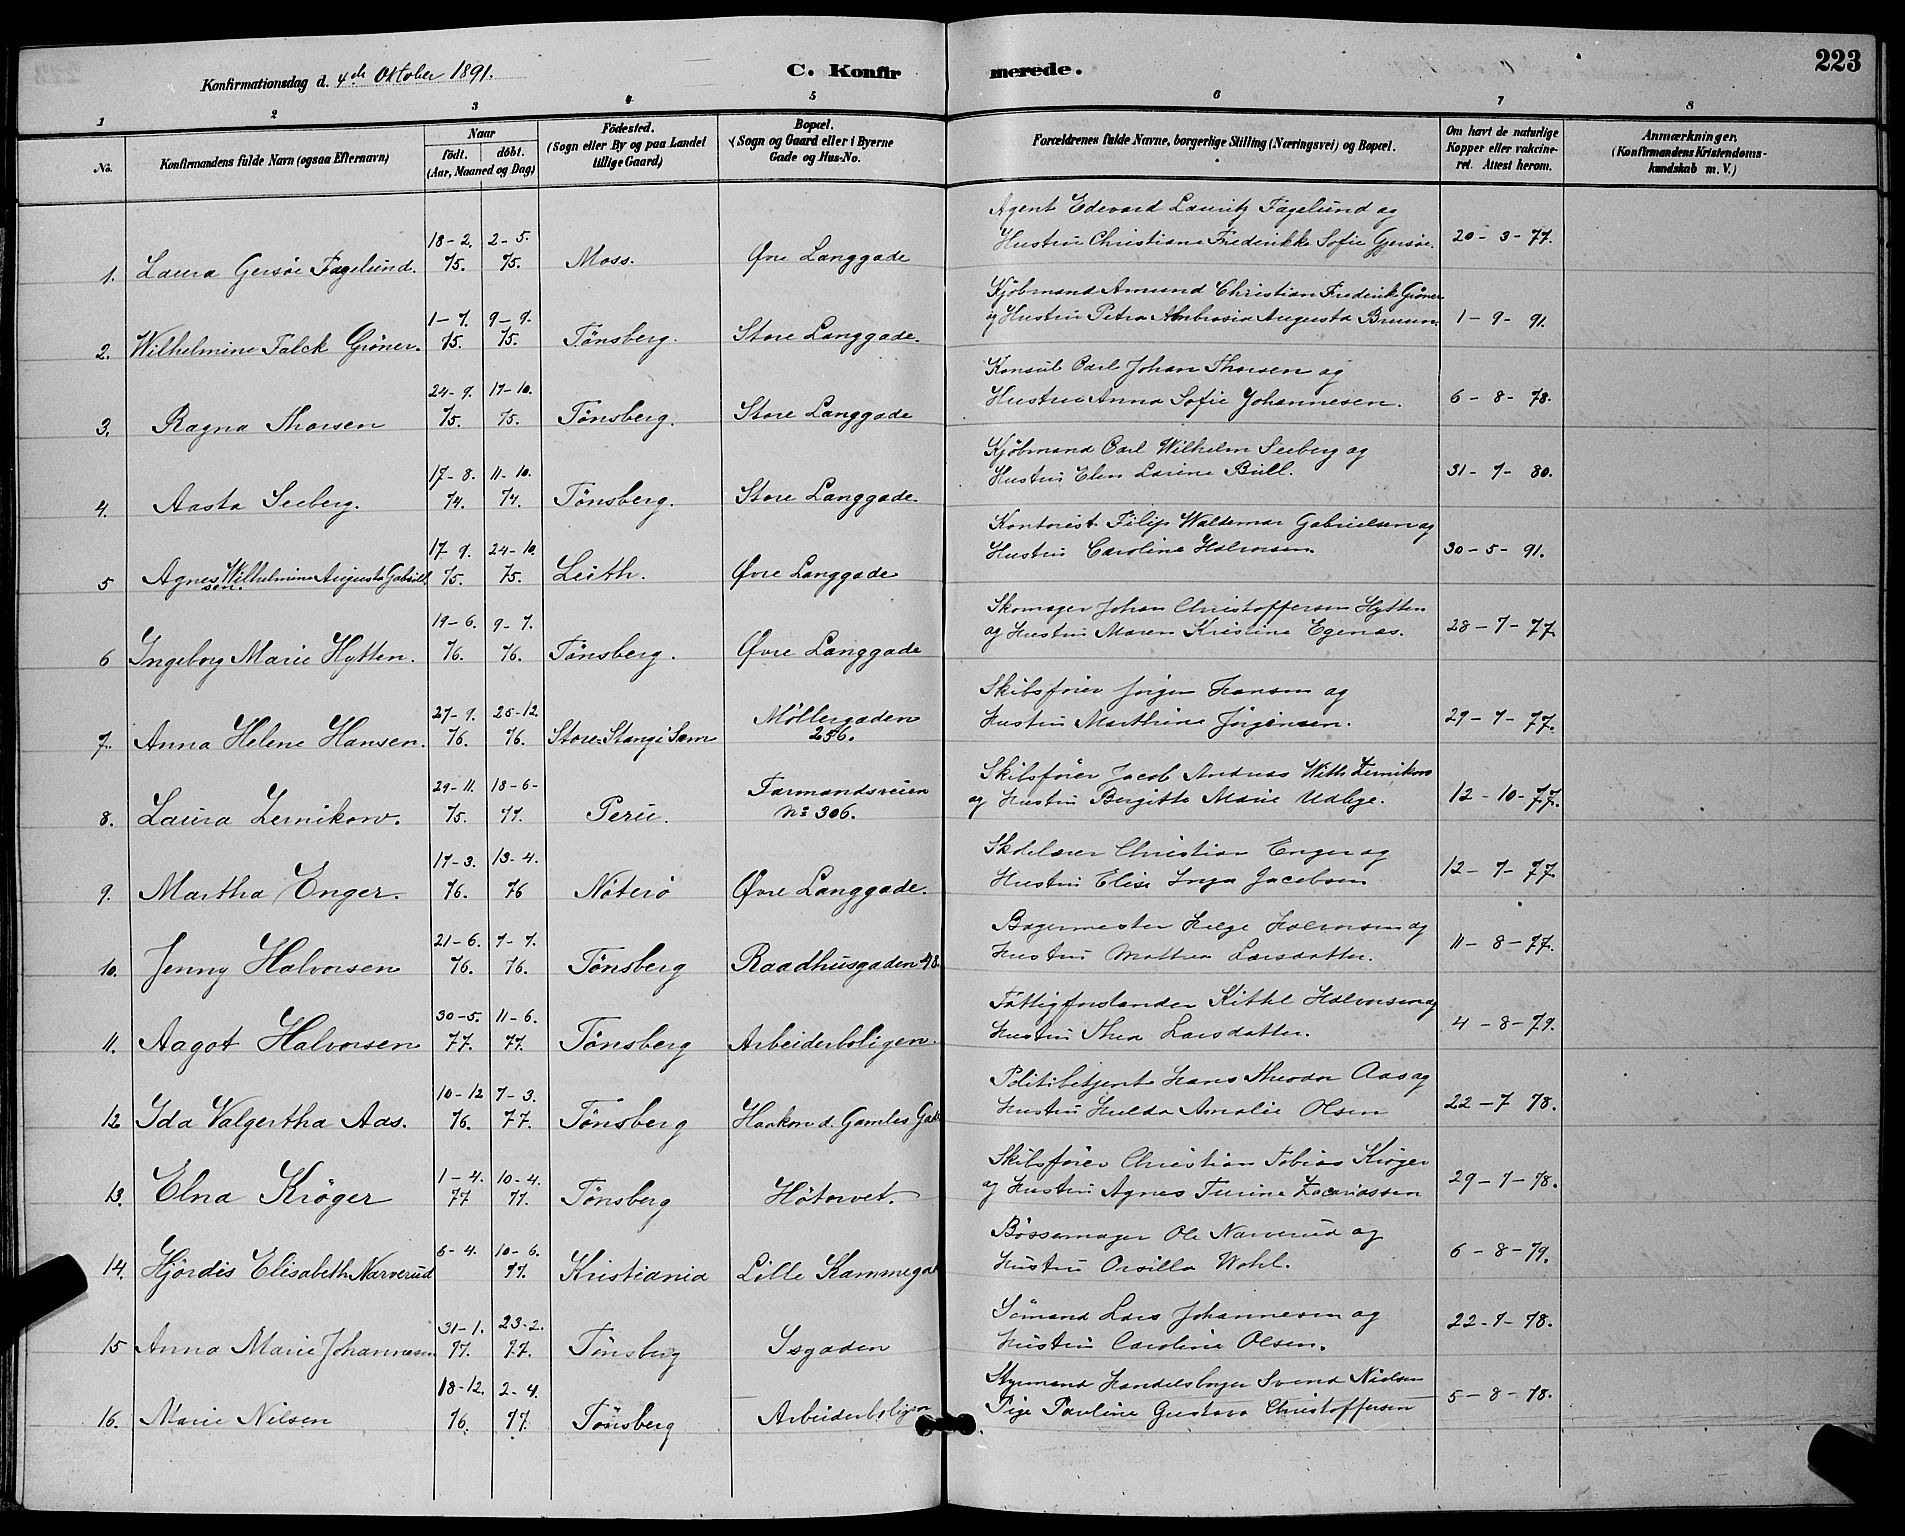 223
Konfirmationsdag d. 4de Oktober 1891.
C. Konfirmerede.
1 2 3 4 5 6 7 8
No.
Konfirmandens fulde Navn (ogsaa Efternavn)
Naar
födt. döbt.
(Aar, Maaned og Dag)
Födested.
(Sogn eller By og paa Landet
tillige Gaard)
Bopæl.
(Sogn og Gaard eller i Byerne
Gade og Hus-No.
Forældrenes fulde Navne, borgerlige Stilling (Næringsvei) og Bopæl.
Om havt de naturlige
Kopper eller vakcine-
ret. Attest herom.
Anmærkninger.
(Konfirmandens Kristendoms-
kundskab m. V.)
Agent Edevard Lauritz Fagelund og
18-2. 2-5. Hustru Christiane Frederikke Sofie Gjersøe. 20-3-77.
1. Laura Gersöe Fagelund. 75. 75. Moss. Øvre Langgade
Kjöbmand Amund Christian Frederik Gröner
1-7. 9-9. og Hustru Petra Ambrosia Augusta Bruun. 1-9-91.
2. Wilhelmine Falck Gröner. 75. 75. Tönsberg. Store Langgade.
Konsul Carl Johan Thorsen og
24-9. 17-10. Hustru Anna Sofie Johannesen. 6-8-78.
3. Ragna Thorsen 75. 75. Tönsberg. Store Langgade
Kjöbmand Carl Wilhelm Seeberg og
17-8. 11-10. Hustru Elen Larine Bull. 31-7-80.
4. Aasta Seeberg. 74. 74. Tönsberg. Store Langgade.
Kontorist Filip Waldemar Gabrielsen og
17 9. 24-10. Hustru Caroline Halvorsen. 30-5-91.
5 Agnes Wilhelmine Augusta Gabriel
sen. 75. 75. Leith. Øvre Langgade
Skomager Johan Christoffersen Hytten
19-6. 9-7. og Hustru Maren Kristine Egenæs. 28-7-77.
6 Ingeborg Marie Hytten. 76. 76. Tönsberg. Øvre Langgade
Skibsfører Jörgen Hansen og
27-9. 25-12. Möllergaden Hustru Marthine Jörgensen. 29-7-77.
7. Anna Helene Hansen. 76. 76. Store Stang i Sem 256.
Skibsfører Jacob Andreas With Zernikow
29-11. 18-6- Farmandsveien og Hustru Bergitte Marie Udbye. 12-10-77.
8. Laura Zernikow. 75. 77. Peru. No 306.
Skolelærer Christian Enger og
17-3. 13-4. Hustru Elise Inga Jacobsen 12-7-77.
9. Martha Enger. 76. 76 Nöterö Øvre Langgade.
Bagermester Helge Halvorsen og
21-6. 7-7. Hustru Mathea Larsdatter. 11-8-77.
10. Jenny Halvorsen 76. 76. Tönsberg Raadhusgaden 48.
Fattigforstander Kittil Halvorsen og
30-5. 11-6. Hustru Thea Larsdatter. 4-8-79.
11. Aagot Halvorsen 77. 77. Tönsberg Arbeiderboligen.
Politibetjent Hans Theodor Aas og
10-12 7-3. Hustru Hulda Amalie Olsen 22-7 78.
12 Ida Valgertha Aas. 76. 77. Tönsberg Haakon d. Gamles Gade
Skibsfører Christian Tobias Kröger
1-4. 10-4. og Hustru Agnes Turine Zacariassen 29-7-78.
13. Elna Kröger 77 77. Tönsberg Hötorvet.
Bössemager Ole Narverud og
6-4. 10-6. Hustru Orsilla Wohl. 6-8-79.
14. Hjördis Elisabeth Narverud 77. Kristiania Lille Kammegade
Sömand Lars Johannesen og
31-1. 23-2. Hustru Caroline Olsen. 22-7-78.
15 Anna Marie Johannesen 77. 77. Tönsberg Isgaden
Styrmand Handelsborger Svend Nielsen
18-12. 2-4. Pige Pauline Gustava Christoffersen 5-8-78.
16. Marie Nilsen 76. 77. Tönsberg Arbeiderboligen